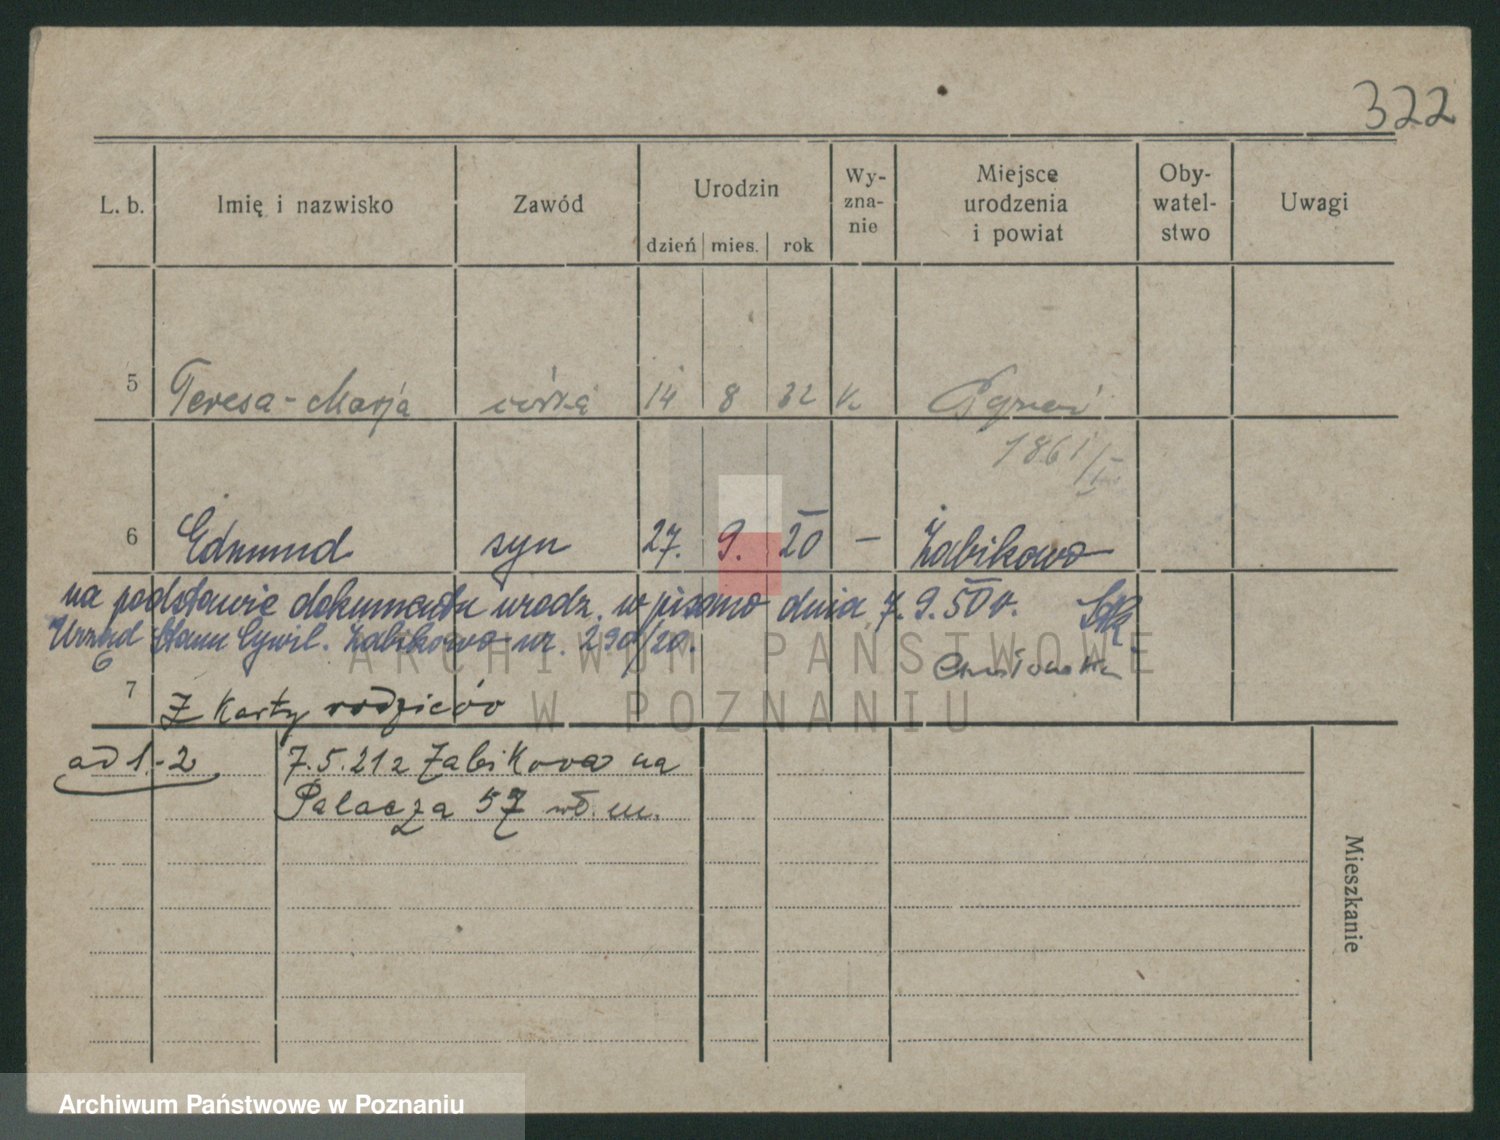 322
L. b. Imię i nazwisko Zawód Urodzin Wy-zna-nie Miejsce urodzenia i powiat Oby-watel-stwo Uwagi
dzień mies. rok
5 Teresa-Marja córka 14 8 32 k
1861/
6 Edmund syn 27. 9. 20 — Żabikowo
na podstawie dokumentu urodz. w pismo dnia 7.9.50 r.
Urząd Stanu Cywil. Żabikowo nr. 290/20.
6
7 Z Karty rodziców
ad 1.-2 7.5.21 z Żabikowa na
Palacza 57 wł. m.
Mieszkanie
ARCHIWUM PAŃSTWOWE
W POZNANIU
Archiwum Państwowe w Poznaniu